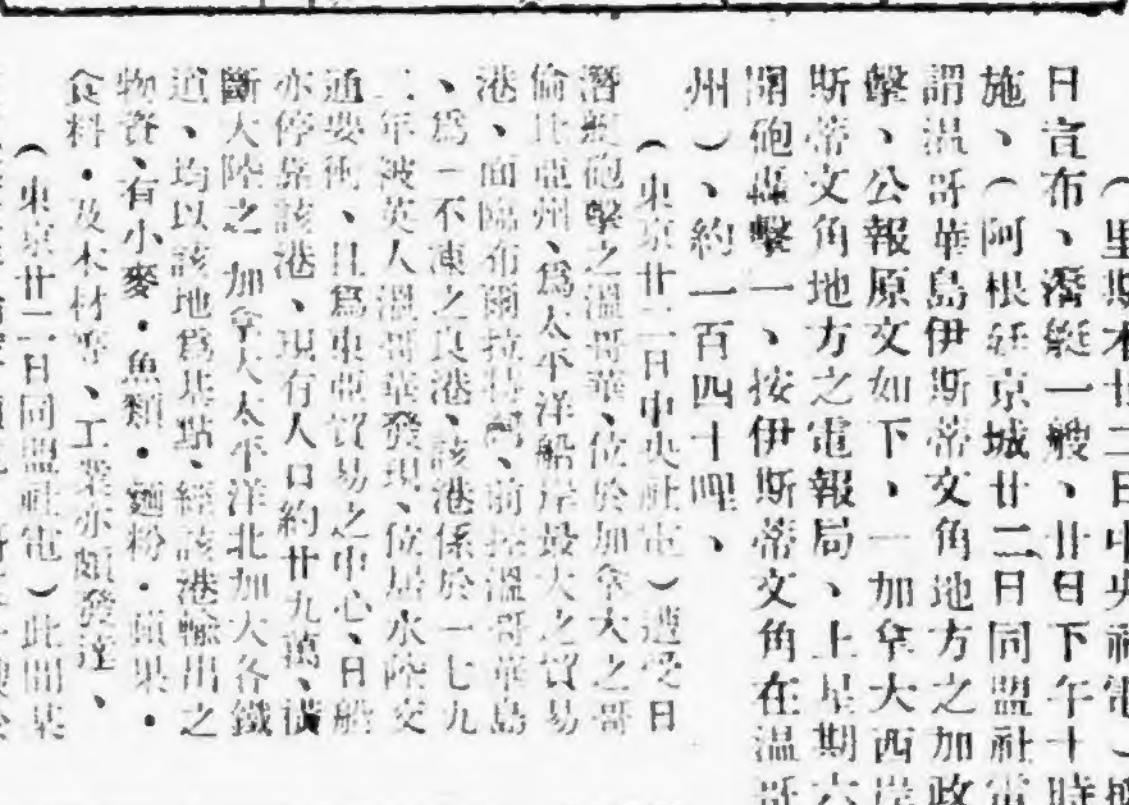 （里斯本廿二日中央社電）據
日宣布、潛艇一艘、廿日下午十時
施、（阿根廷京城廿二日同盟社電
謂溫哥華島伊斯蒂文角地方之加政
擊、公報原文如下、一加拿大西岸
斯蒂文角地方之電報局、上星期六
開砲轟擊一、按伊斯蒂文角在溫哥
州）、約一百四十哩、
（東京廿二日中央社電）遭受日
潛艇砲擊之溫哥華、位於加拿大之哥
倫比亞州、爲太平洋船岸最大之貿易
港、面臨布爾拉 、前 溫哥華島
、爲一不凍之良港、該港係於一七九
二年被英人溫哥華發現、位居水陸交
通要衝、且爲東亞貿易之中心、日船
亦停靠該港、現有人口約廿九萬、橫
斷大陸之 加拿大太平洋北加大各鐵
道、均以該地爲基點、經該港輸出之
物資、有小麥・魚類・麵粉・蘋果・
食料・及木材等、工業亦頗發達、
（東京廿二日同盟社電）此間某